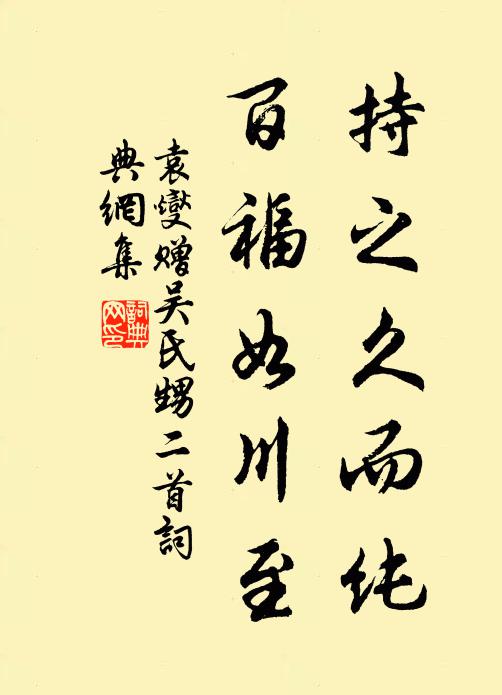 持之久而纯
百福如川至
袁燮赠吴氏甥二首詞
典網集
詞典
网印